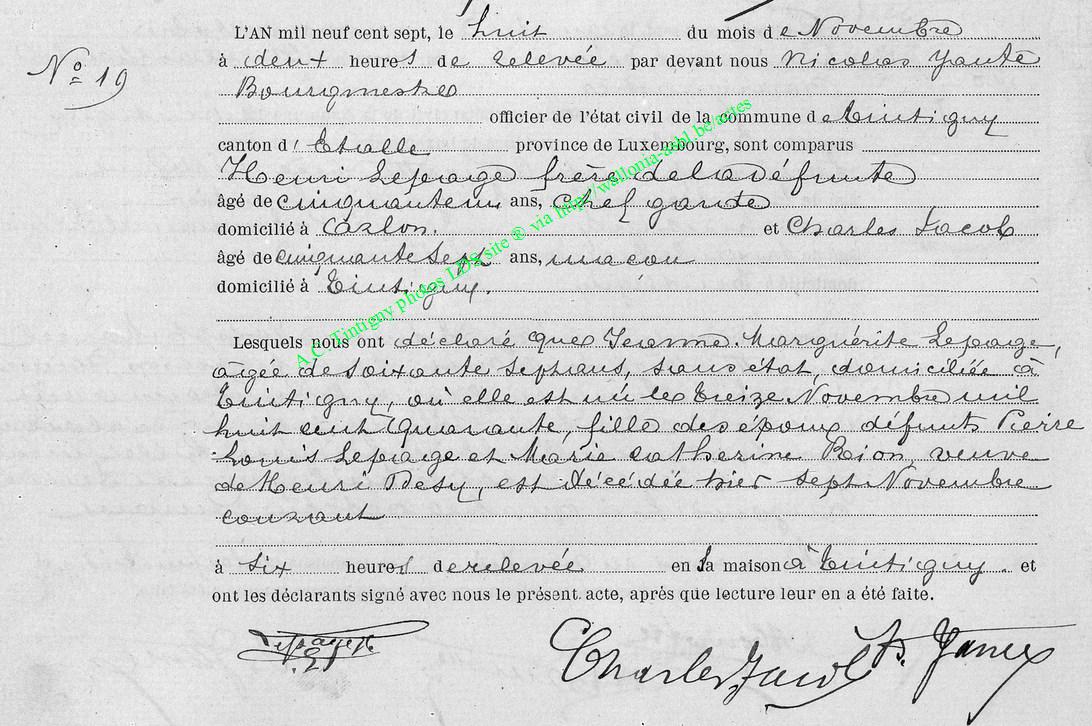 L'AN mil neuf cent sept, le huit du mois de Novembre
No 19
à deux heures de relevée par devant nous Nicolas
Bourgmestre
officier de l'état civil de la commune de Tintigny
canton d'Etalle province de Luxembourg, sont comparus
Henri Lepage frère de la défunte
âgé de cinquante un ans, chef garde
domicilié à Arlon. et Charles Jacob
âgé de cinquante sept ans, macon
domicilié à Tintigny.
Lesquels nous ont déclaré que Jeanne Marguérite Lepage,
agée de soixante sept ans, sans état, domiciliée à
Tintigny, où elle est née le treize Novembre mil
huit cent quarante, fille des époux défunts Pierre
Louis Lepage et Marie Catherine Rion, veuve
de Henri Desy, est décédée hier sept Novembre
courant
à six heures de relevée en sa maison à Tintigny. et
ont les déclarants signé avec nous le présent acte, après que lecture leur en a été faite.
Lepage H
Charles Jacob
A.C. Tintigny photos LDS site ® via http://wallonia-asbl.be/actes